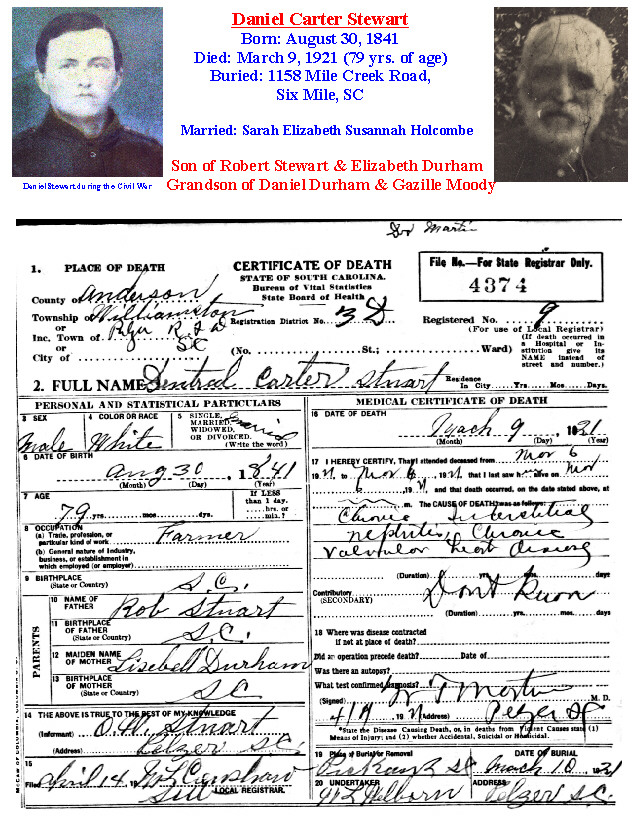 Daniel Carter Stewart
Born: August 30, 1841
Died: March 9, 1921 (79 yrs. of age)
Buried: 1158 Mile Creek Road,
Six Mile, SC
Married: Sarah Elizabeth Susannah Holcombe
Son of Robert Stewart & Elizabeth Durham
Grandson of Daniel Durham & Gazille Moody
Daniel Stewart during the Civil War
Martin
1. PLACE OF DEATH
County of Anderson
Township of Williamston
or
Inc. Town of Pelzer R F D
or SC
City of
CERTIFICATE OF DEATH
STATE OF SOUTH CAROLINA.
Bureau of Vital Statistics
State Board of Health
Registration District No. 3 D
(No. St.; Ward)
File No.—For State Registrar Only.
4374
Registered No. 9
(For use of Local Registrar)
(If death occurred in
a Hospital or In-
stitution give its
NAME instead of
street and number.)
2. FULL NAME Carter Stuart
Residence
In City Yrs. Mos. Days.
PERSONAL AND STATISTICAL PARTICULARS
3 SEX
Male
4 COLOR OR RACE
White
5 SINGLE,
MARRIED,
WIDOWED,
OR DIVORCED.
(Write the word)
6 DATE OF BIRTH
Aug 30 1841
(Month) (Day) (Year)
7 AGE
79 yrs. mos. ds.
If LESS
than 1 day.
hrs. or
min.?
8 OCCUPATION
(a) Trade, profession, or
particular kind of work Farmer
(b) General nature of Industry,
business, or establishment in
which employed (or employer)
9 BIRTHPLACE
(State or Country) S.C.
PARENTS
10 NAME OF
FATHER Rob Stuart
11 BIRTHPLACE
OF FATHER
(State or Country) S.C.
12 MAIDEN NAME
OF MOTHER Lisebell Durham
13 BIRTHPLACE
OF MOTHER
(State or Country) SC
14 THE ABOVE IS TRUE TO THE BEST OF MY KNOWLEDGE
(Informant) O.W. Stuart
(Address) Pelzer S.C.
15
Filed April 14, 19
LOCAL REGISTRAR.
MEDICAL CERTIFICATE OF DEATH
16 DATE OF DEATH
Mach 9, 1921
(Month) (Day) (Year)
17 I HEREBY CERTIFY, That I attended deceased from Mov 6
1921 to Mov 6, 1921 that I last saw h alive on Mov
6, 1921 and that death occurred, on the date stated above, at
m. The CAUSE OF DEATH was as follows:
Chronic Interstitial
nephritis, Chronic
Valvular heart disease
(Duration) yrs. mos. days
Contributory
(SECONDARY) Dont Know
(Duration) yrs. mos. days
18 Where was disease contracted
if not at place of death?
Did an operation precede death? Date of
Was there an autopsy?
What test confirmed diagnosis?
(Signed) W T Martin M. D.
4/19 1921 (Address) Pelzer SC
*State the Disease Causing Death, or, in deaths from Violent Causes state (1)
Means of Injury; and (2) whether Accidental, Suicidal or Homicidal.
19 Place of Burial or Removal
SC
DATE OF BURIAL
Mach 10 1921
20 UNDERTAKER
Welborn
ADDRESS
Pelzer S.C.